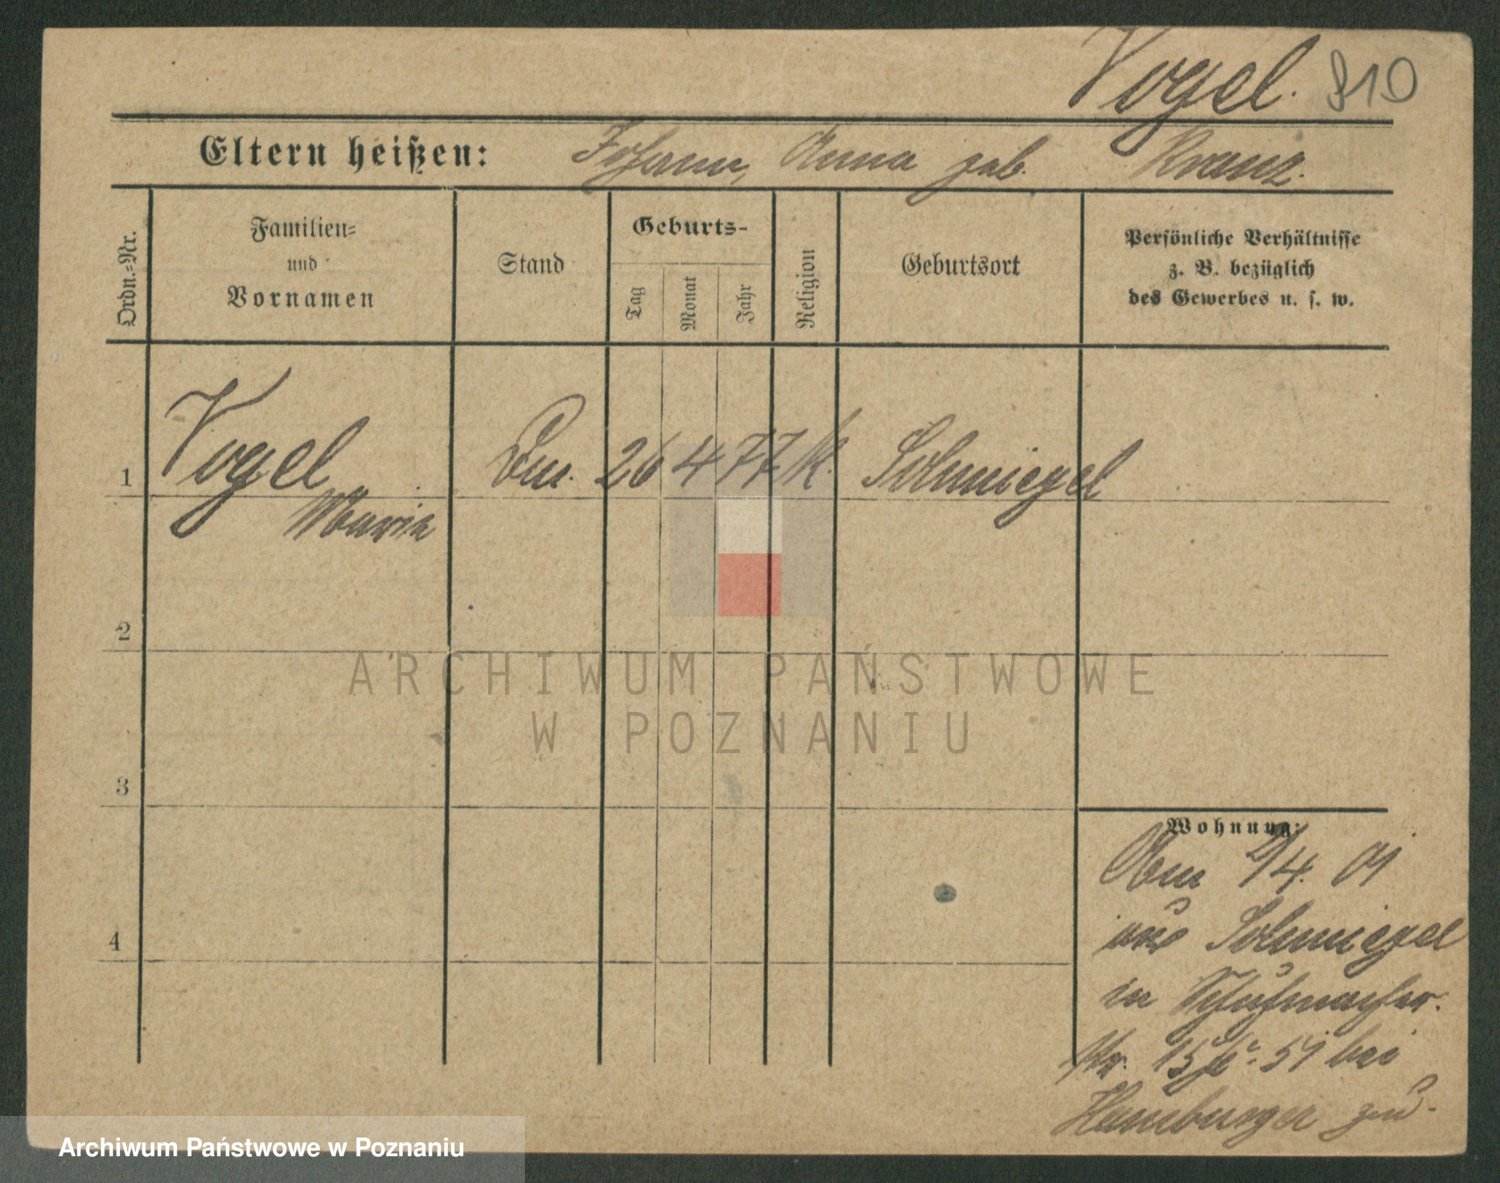 Vogel. 910
Eltern heißen: Johann, Anna geb. Kranz.
Ordn.=Nr.
Familien=
und
Vornamen
Stand
Geburts-
Tag
Monat
Jahr
Religion
Geburtsort
Persönliche Verhältnisse
z. B. bezüglich
des Gewerbes u. s. w.
1 Vogel 26 4 77 K. Schmiegel
Maria
2
ARCHIWUM PAŃSTWOWE
W POZNANIU
3
Wohnung:
4. 01
4 aus Schmiegel
in Schuhmacher
15 51 bei
Hamburger
Archiwum Państwowe w Poznaniu